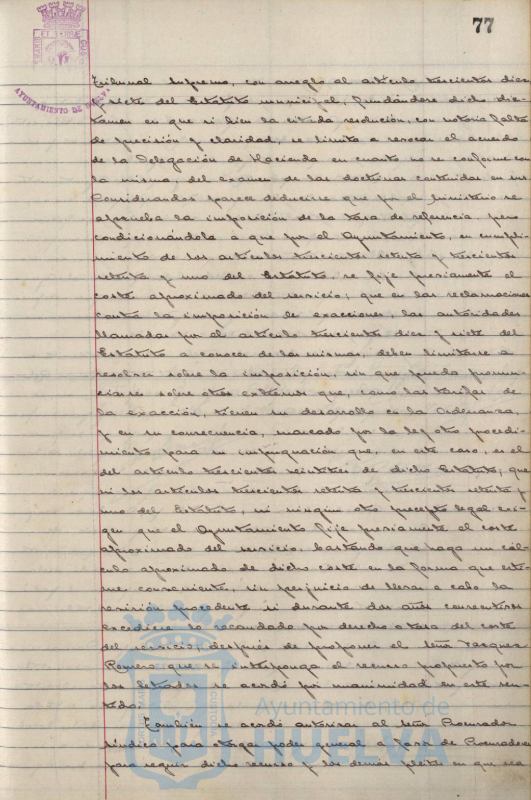 77
AYUNTAMIENTO DE HUELVA
Tribunal Supremo, con arreglo al artículo trescientos diez
y siete del Estatuto municipal, fundándose dicho dic-
tamen en que si bien la citada resolución, con notoria falta
de precisión y claridad, se limita a revocar el acuerdo
de la Delegación de Hacienda en cuanto no se conforme con
la misma del examen de las doctrinas contenidas en sus
Considerandos parece deducirse que por el Ministerio se
aprueba la imposición de la tasa de referencia, pero
condicionándola a que por el Ayuntamiento, en cumpli-
miento de los artículos trescientos setenta y trescientos
setenta y uno del Estatuto, se fije previamente el
coste aproximado del servicio; que en las reclamaciones
contra la imposición de exacciones, las autoridades
llamadas por el artículo trescientos diez y siete del
Estatuto a conocer de las mismas, deben limitarse a
resolver sobre la imposición, sin que pueda pronun-
ciarse sobre otros extremos que, como las tarifas de
la exacción, tienen su desarrollo en la Ordenanza,
y en su consecuencia, marcado por la ley otro procedi-
miento para su impugnación que, en este caso, es el
del artículo trescientos veintitres de dicho Estatuto, que
ni los artículos trescientos setenta y trescientos setenta y
uno del Estatuto, ni ningún otro precepto legal exi-
gen que el Ayuntamiento fije previamente el coste
aproximado del servicio, bastando que haga un cál-
culo aproximado de dicho coste en la forma que esti-
me conveniente, sin perjuicio de llevar a cabo la
revisión procedente si durante dos años consecutivos
excediera lo recaudado por derecho o tasa del coste
del servicio; después de proponer el señor Vazquez
Romero que se interponga el recurso propuesto por
los letrados se acordó por unanimidad en este sen-
tido.
También se acordó autorizar al señor Procurador
Síndico para otorgar poder general a favor de Procuradores
para seguir dicho recurso y los demás pleitos en que sea
Ayuntamiento de
HUELVA